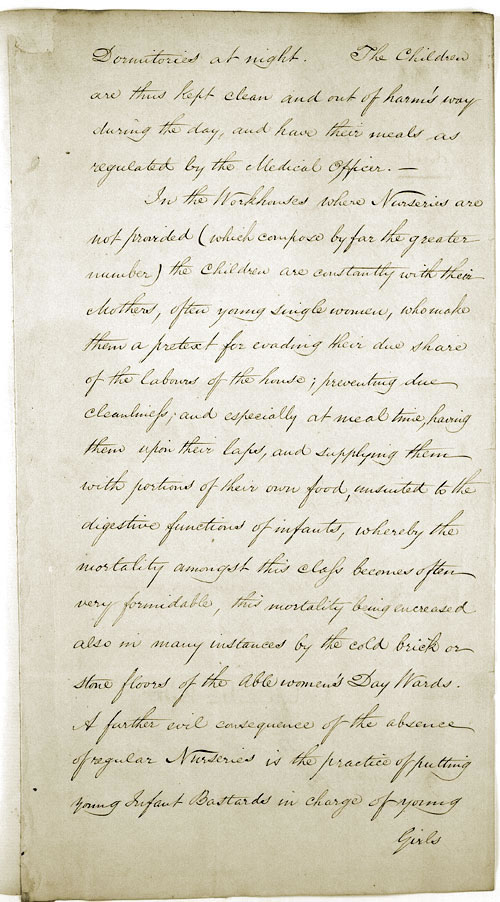 Dormitories at night. The Children
are thus kept clean and out of harm's way
during the day, and have their meals as
regulated by the Medical Officer. —
In the Workhouses where Nurseries are
not provided (which compose by far the greater
number) the Children are constantly with their
Mothers, often young single women, who make
them a pretext for evading their due share
of the labours of the house; preventing due
cleanliness; and especially at meal time, having
them upon their laps, and supplying them
with portions of their own food, unsuited to the
digestive functions of infants, whereby the
mortality amongst this class becomes often
very formidable, this mortality being encreased
also in many instances by the cold brick or
stone floors of the Able women's Day Wards.
A further evil consequence of the absence
of regular Nurseries is the practice of putting
young Infant Bastards in charge of young
Girls